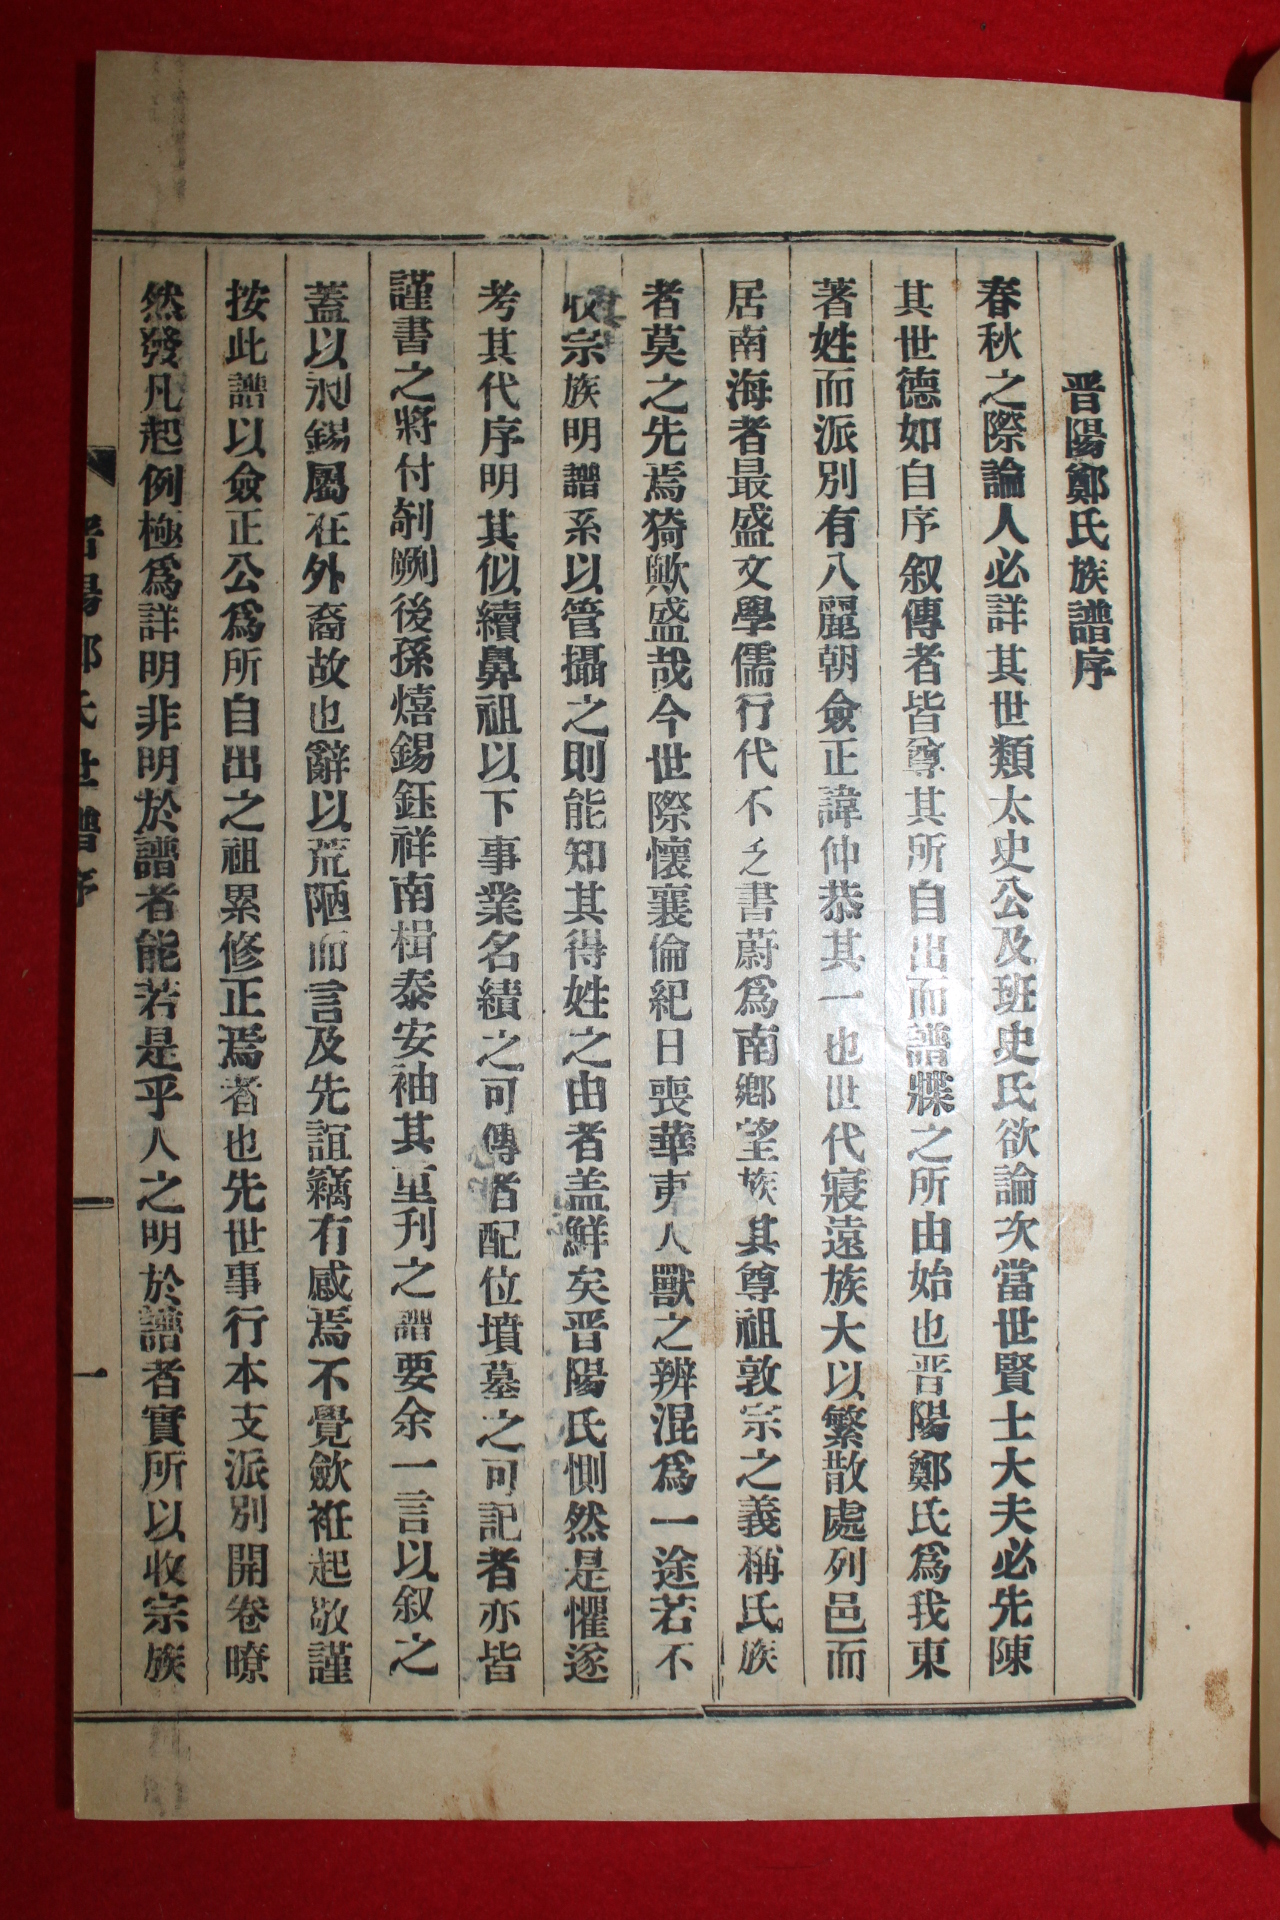 晋陽鄭氏族譜序
春秋之際論人必詳其世類太史公及班史氏欲論次當世賢士大夫必先陳
其世德如自序叙傳者皆尊其所自出而譜牒之所由始也晋陽鄭氏爲我東
著姓而派別有八麗朝僉正諱仲恭其一也世代寢遠族大以繁散處列邑而
居南海者最盛文學儒行代不乏書蔚爲南鄉望族其尊祖敦宗之義稱氏族
者莫之先焉猗歟盛哉今世際懷襄倫紀日喪華夷人獸之辨混爲一途若不
收宗族明譜系以管攝之則能知其得姓之由者盖鮮矣晋陽氏惻然是懼遂
考其代序明其似續鼻祖以下事業名績之可傳者配位墳墓之可記者亦皆
謹書之將付剞劂後孫熺錫鈺祥南楫泰安袖其重刊之譜要余一言以叙之
蓋以永錫屬在外裔故也辭以荒陋而言及先誼竊有感焉不覺歛袵起敬謹
按此譜以僉正公爲所自出之祖累修正焉者也先世事行本支派別開卷暸
然發凡起例極爲詳明非明於譜者能若是乎人之明於譜者實所以收宗族
晋陽鄭氏世譜序
一